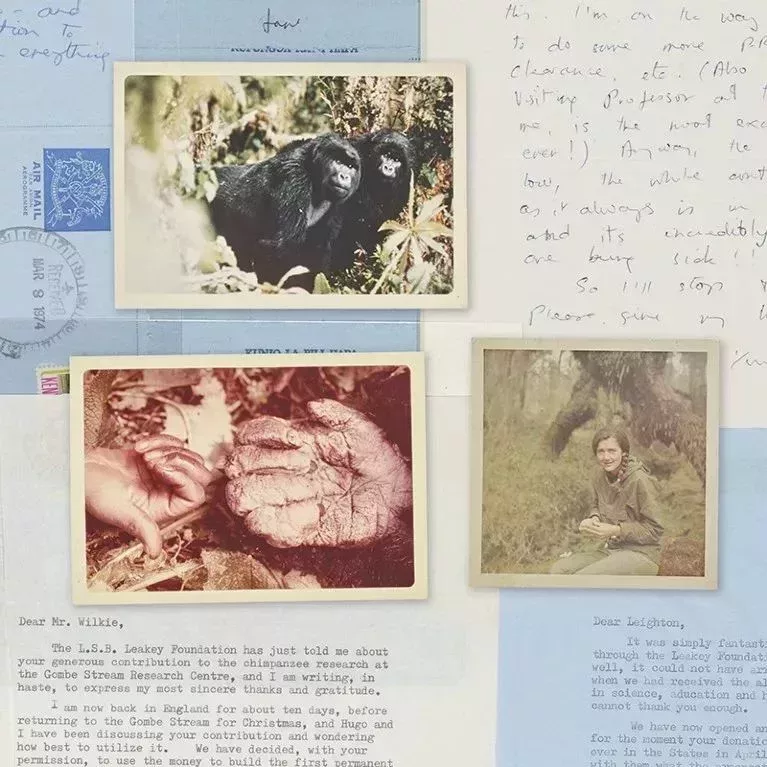 - and
tion to
everything
Jane
AIR MAIL
PAR AVION
AEROGRAMME
RECEIVED
MAR 9 1974
KEN
this. I'm on the way
to do some more P.R.
clearance, etc. (Also
Visiting Professor at
me, is the most exc
ever!) Anyway, the
low, the white ant
as it always is in
and its incredibly
are being sick!!
So I'll stop
Please give my
Dear Mr. Wilkie,
The L.S.B. Leakey Foundation has just told me about
your generous contribution to the chimpanzee research at
the Gombe Stream Research Centre, and I am writing, in
haste, to express my most sincere thanks and gratitude.
I am now back in England for about ten days, before
returning to the Gombe Stream for Christmas, and Hugo and
I have been discussing your contribution and wondering
how best to utilize it. We have decided, with your
permission, to use the money to build the first permanent
Dear Leighton,
It was simply fantasti
through the Leakey Foundati
well, it could not have arr
when we had received the al
in science, aducation and h
cannot thank you enough.
We have now opened an
for the moment your donatio
over in the States in April
with them what the